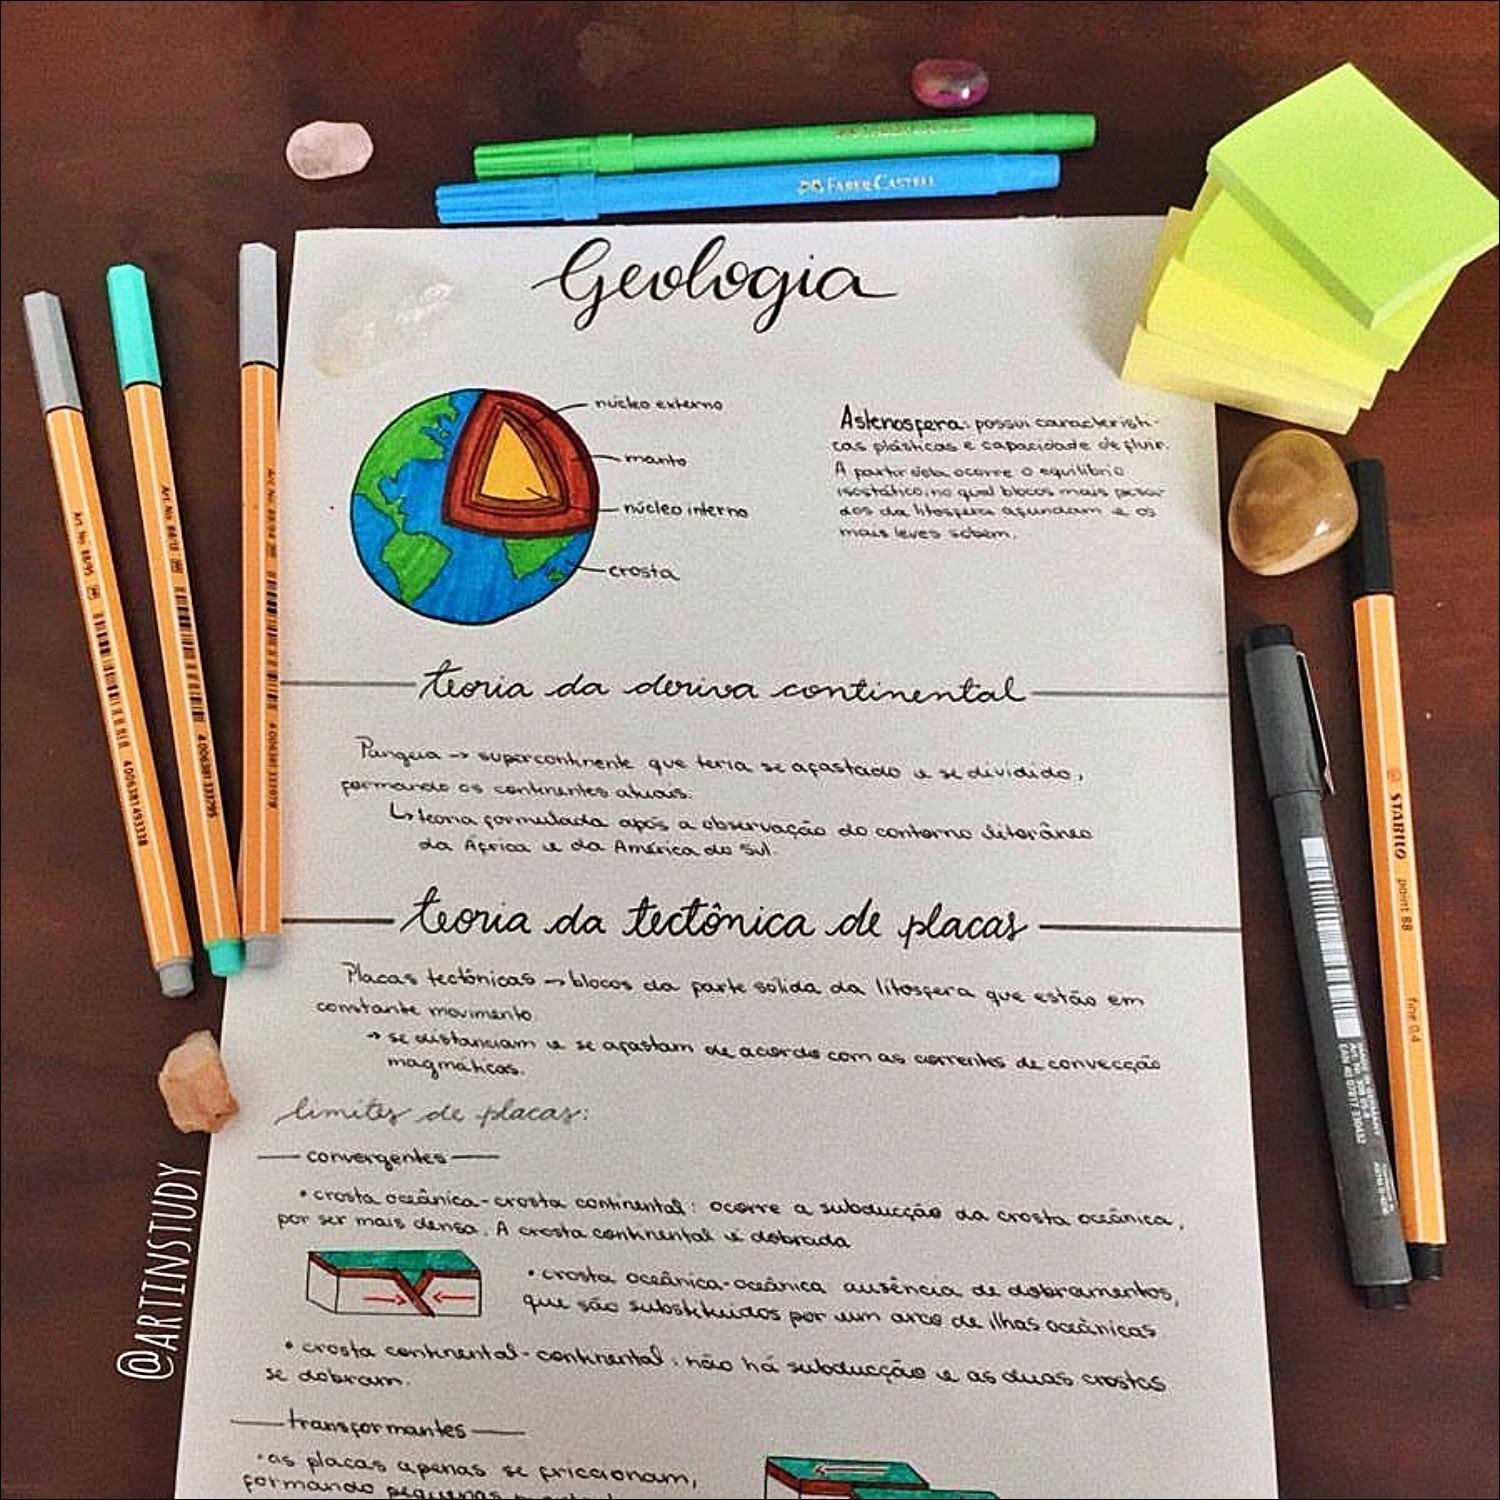 FABER-CASTELL
Geologia
núcleo externo
manto
núcleo interno
crosta
Astenosfera: possui característi-
cas plásticas e capacidade de fluir.
A partir dela ocorre o equilíbrio
isostático, no qual blocos mais pesa-
dos da litosfera afundam e os
mais leves sobem.
teoria da deriva continental
Pangeia → supercontinente que teria se afastado e se dividido,
formando os continentes atuais.
↳ teoria formulada após a observação do contorno litorâneo
da África e da América do Sul.
teoria da tectônica de placas
Placas tectônicas → blocos da parte sólida da litosfera que estão em
constante movimento
→ se distanciam e se afastam de acordo com as correntes de convecção
magmáticas.
limites de placas:
convergentes
• crosta oceânica - crosta continental: ocorre a subducção da crosta oceânica,
por ser mais densa. A crosta continental é dobrada
• crosta oceânica-oceânica: ausência de dobramentos,
que são substituídos por um arco de ilhas oceânicas
• crosta continental - continental: não há subducção e as duas crostas
se dobram.
transformantes
• as placas apenas se friccionam,
formando pequenas
@ARTINSTUDY
Art. No. 88/95
4006381493338
Art. No. 88/13
4006381333795
STABILO point 88 fine 0.4